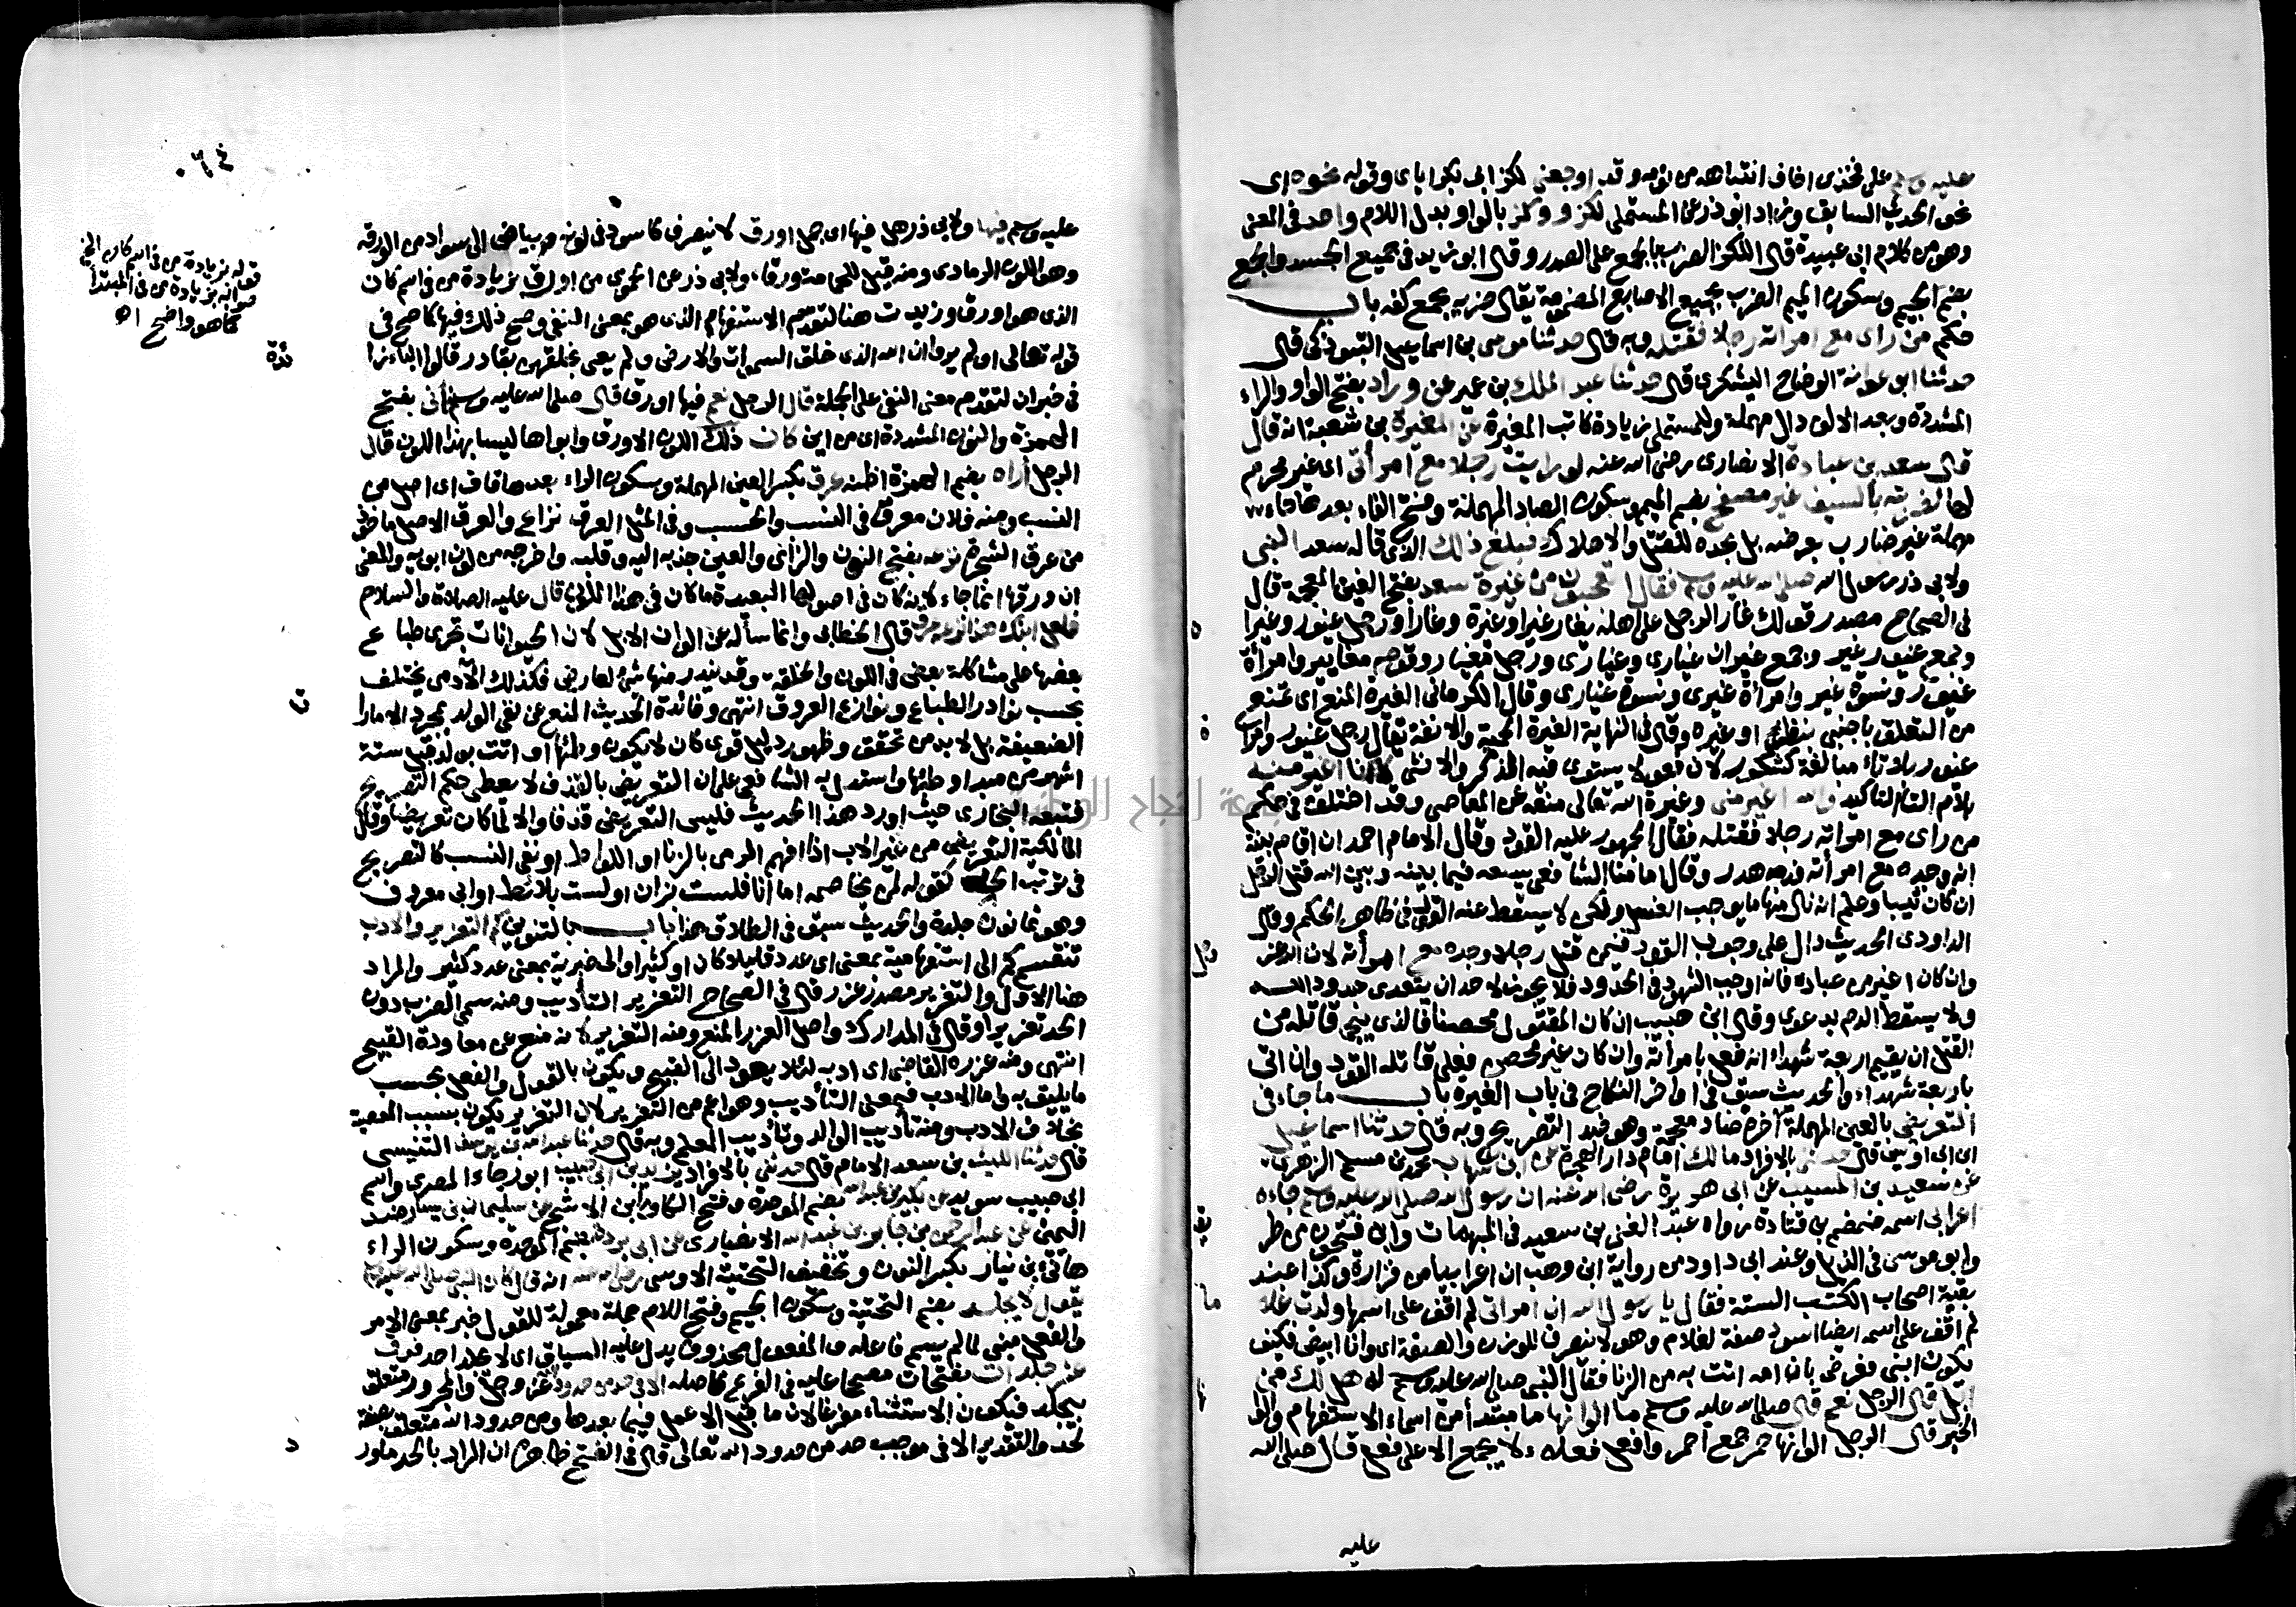 عليه وسلم على فخذى اخاف انتباهه من نومه وقد اوجعنى لكز ابى بكر اياى وقوله نحوه اى
نحو الحديث السابق وزاد ابو ذر عن المستملى لكز ووكز بالواو بدل اللام واحد فى المعنى
وهو من كلام ابى عبيدة قال اللكز الضرب بالجمع على الصدر وقال ابو زيد فى جميع الجسد والجمع
بضم الجيم وسكون الميم الضرب بجميع الاصابع المضمومة يقال ضربه بجمع كفه باب
حكم من راى مع امراته رجلا فقتله وبه قال حدثنا موسى بن اسماعيل التبوذكى قال
حدثنا ابو عوانة الوضاح اليشكرى قال حدثنا عبد الملك بن عمير عن وراد بفتح الواو والراء
المشددة وبعد الالف دال مهملة وللمستملى زيادة كاتب المغيرة عن المغيرة بن شعبة انه قال
قال سعد بن عبادة الانصارى رضى الله عنه لو رايت رجلا مع امرأتى اى غير محرم
لها لضربته بالسيف غير مصفح بضم الميم وسكون الصاد المهملة وفتح الفاء بعدها حاء
مهملة غير ضارب بعرضه بل بحده للقتل والاهلاك فبلغ ذلك الذى قاله سعد النبى
ولابى ذر رسول الله صلى الله عليه وسلم فقال اتعجبون من غيرة سعد بفتح الغين المعجمة قال
فى الصحاح مصدر قولك غار الرجل على اهله يغار غيرا وغيرة وغارا ورجل غيور وغيران
وجمع غيور غير وجمع غيران غيارى وغيارى ورجل مغيار وقوم مغايير وامرأة
غيور ونسوة غير وامرأة غيرى ونسوة غيارى وقال الكرمانى الغيرة المنع اى تمنع
من التعلق باجنبى بنظر او غيره وقال فى النهاية الغيرة الحمية والانفة يقال رجل غيور وامرأة
غيور بلا تاء مبالغة كشكور لان فعولا يستوى فيه المذكر والانثى لانا اغير منه
بلام التأكيد والله اغير منى وغيرة الله تعالى منعه عن المعاصى وقد اختلف فى حكم
من راى مع امراته رجلا فقتله فقال الجمهور عليه القود وقال الامام احمد ان اقام بينة
انه وجده مع امرأته فدمه هدر وقال امامنا الشافعى يسعه فيما بينه وبين الله قتل الرجل
ان كان ثيبا وعلم انه نال منها ما يوجب الغسل ولكن لا يسقط عنه القود فى ظاهر الحكم وقال
الداودى الحديث دال على وجوب القود فيمن قتل رجلا وجده مع امرأته لان الله عز
وان كان اغير من عباده فانه اوجب الشهود فى الحدود فلا يجوز لاحد ان يتعدى حدود الله
ولا يسقط الدم بدعوى وقال ابن حبيب ان كان المقتول محصنا فالذى ينجى قاتله من
القتل ان يقيم اربعة شهداء انه فعل بامرأته وان كان غير محصن فعلى قاتله القود وان اتى
باربعة شهداء والحديث سبق فى اواخر النكاح فى باب الغيرة باب ما جاء فى
التعريض بالعين المهملة آخره ضاد معجمة وهو ضد التصريح وبه قال حدثنا اسماعيل
ابن ابى اويس قال حدثنى بالافراد مالك امام دار الهجرة عن ابن شهاب محمد بن مسلم الزهرى
عن سعيد بن المسيب عن ابى هريرة رضى الله عنه ان رسول الله صلى الله عليه وسلم جاءه
اعرابى اسمه ضمضم بن قتادة رواه عبد الغنى بن سعيد فى المبهمات وابن فتحون من طر
وابو موسى فى الذيل وعند ابى داود من رواية ابن وهب ان اعرابيا من فزارة وكذا عند
بقية اصحاب الكتب الستة فقال يا رسول الله ان امراتى لم اقف على اسمها ولدت غلا
لم اقف على اسمه ايضا اسود صفة لغلام وهو لا ينصرف للوزن والصفة اى وانا ابيض فكيف
يكون ابنى فعرض بان امه اتت به من الزنا فقال النبى صلى الله عليه وسلم له هل لك من
ابل قال الرجل نعم قال صلى الله عليه وسلم ما الوانها ما مبتدأ من اسماء الاستفهام والو
الخبر قال الرجل الوانها حمر جمع احمر وافعل فعلاء لا يجمع الا على فعل قال صلى الله
عليه
٠٦٤
عليه وسلم فيها ولابى ذر هل فيها اى جمل اورق لا ينصرف كاسود فى لونه بياض الى سواد من الورقة
وهو اللون الرمادى ومنه قيل للحمامة ورقاء ولابى ذر عن الحموى من اورق بزيادة من فى اسم كان
الذى هو اورق وزيدت هنا لتقدم الاستفهام الذى هو بمعنى النفى وصح ذلك فيها كما صح فى
قوله تعالى اولم يروا ان الله الذى خلق السموات والارض ولم يعى بخلقهن بقادر قالوا الباء زا
فى خبر ان لتقدم معنى النفى على الجملة قال الرجل نعم فيها اورق قال صلى الله عليه وسلم أنى بفتح
الهمزة والنون المشددة اى من اين كان ذلك اللون الاورق وابواها ليسا بهذا اللون قال
الرجل أراه بضم الهمزة اظنه عرق بكسر العين المهملة وسكون الراء بعدها قاف اى اصل من
النسب ومنه فلان معرق فى النسب والحسب وفى المثل العرق نزاع والعرق الاصل ماخوذ
من عرق الشجرة نزعه بفتح النون والزاى والعين جذبه اليه وقلبه واخرجه من لون ابويه والمعنى
ان ورقها انما جاء لانه كان فى اصولها البعيدة ما كان فى هذا اللون قال عليه الصلاة والسلام
فلعل ابنك هذا نزعه عرق قال الخطابى وانما سأله عن الوان الابل لان الحيوانات تجرى طباع
بعضها على مشاكلة بعض فى اللون والخلقة وقد يندر منها شئ لعارض فكذلك الآدمى يختلف
بحسب نوادر الطباع ونوازع العروق انتهى وفائدة الحديث المنع عن نفى الولد بمجرد الامارا
الضعيفة بل لا بد من تحقق وظهور دليل قوى كان لا يكون وطئها او اتت بولد قبل ستة
اشهر من مبدا وطئها واستدل به الشافعى على ان التعريض بالقذف لا يعطى حكم التصريح
فتبعه البخارى حيث اورد هذا الحديث فليس التعريض قذفا والا لما كان تعريضا وقال
المالكية التعريض من غير الاب اذا افهم الرمى بالزنا او اللواط او نفى النسب كالتصريح
فى ترتب الحد كقوله لمن يخاصمه اما انا فلست بزان او لست بلائط او ابى معروف
وهو ثمانون جلدة والحديث سبق فى الطلاق هذا باب بالتنوين كم التعزير والادب
تنقسم كم الى استفهامية بمعنى اى عدد قليلا كان او كثيرا والى خبرية بمعنى عدد كثير والمراد
هنا الاول والتعزير مصدر عزر قال فى الصحاح التعزير التأديب ومنه سمى الضرب دون
الحد تعزيرا وقال فى المدارك واصل العزر المنع ومنه التعزير لانه منع عن معاودة القبيح
انتهى ومنه عزره القاضى اى ادبه لئلا يعود الى القبيح ويكون بالقول والفعل بحسب
ما يليق به واما الادب فبمعنى التأديب وهو اعم من التعزير لان التعزير يكون بسبب المعصية
بخلاف الادب ومنه تأديب الوالد وتأديب المعلم وبه قال حدثنا عبد الله بن يوسف التنيسى
قال حدثنا الليث بن سعد الامام قال حدثنى بالافراد يزيد بن ابى حبيب ابو رجاء المصرى واسم
ابى حبيب سويد عن بكير بن عبد الله بضم الموحدة وفتح الكاف ابن الاشج عن سليمان بن يسار ضد
اليمين عن عبد الرحمن بن جابر بن عبد الله الانصارى عن ابى بردة بضم الموحدة وسكون الراء
هانئ بن نيار بكسر النون وتخفيف التحتية الاوسى رضى الله عنه انه قال كان النبى صلى الله عليه وسلم
يقول لا يجلد بضم التحتية وسكون الجيم وفتح اللام جملة معمولة للقول خبر بمعنى الامر
والفعل مبنى لما لم يسم فاعله والمفعول محذوف يدل عليه السياق اى لا يجلد احد فوق
عشر جلدات بفتحات مصححا عليه فى الفرع كاصله الا فى حد من حدود الله عز وجل والمجرور متعلق
بيجلد فيكون الاستثناء مفرغا لان ما قبل الا عمل فيما بعدها ومن حدود الله متعلق بصفة
لحد والتقدير الا فى موجب حد من حدود الله تعالى قال فى الفتح ظاهره ان المراد بالحد ما ورد
قوله بزيادة من فى اسم كان الخ
صوابه بزيادة من فى المبتدأ
كما هو واضح اه